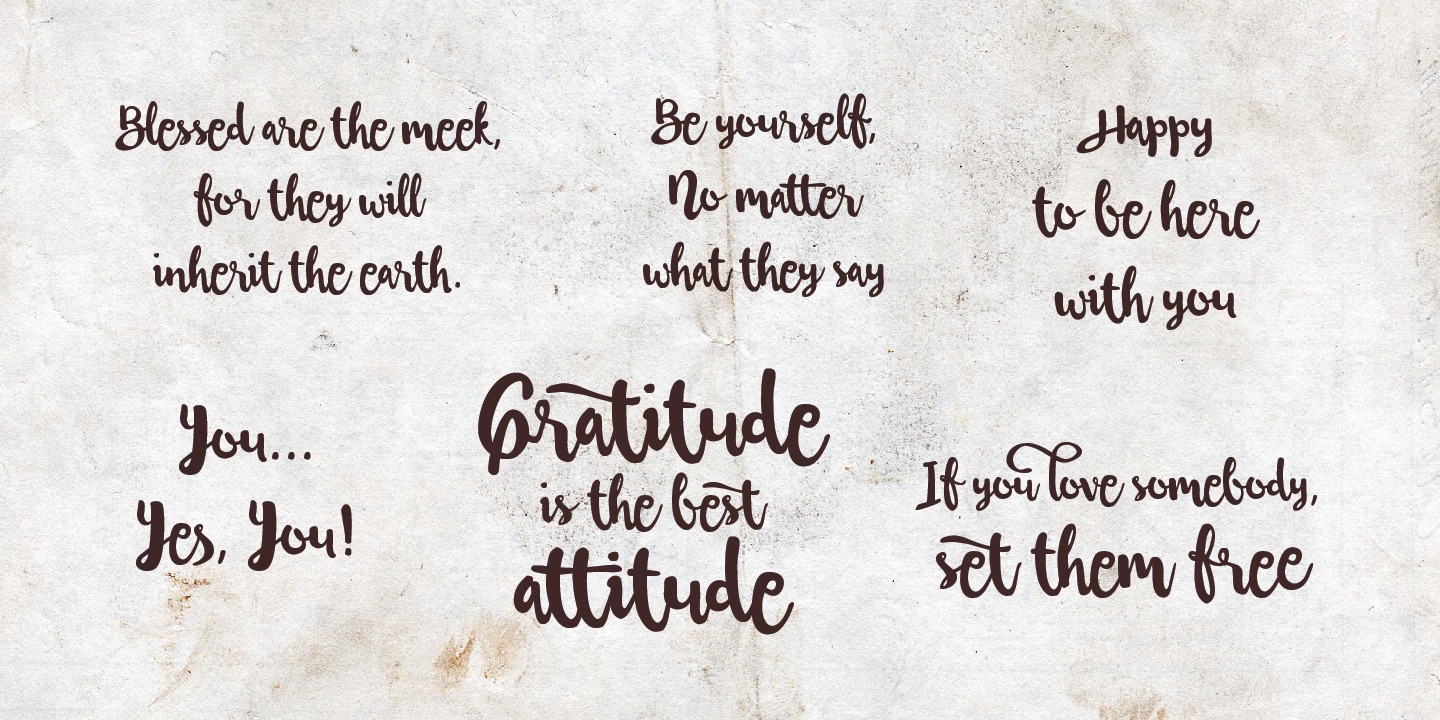 Blessed are the meek,
for they will
inherit the earth.
Be yourself,
No matter
what they say
Happy
to be here
with you
You...
Yes, You!
Gratitude
is the best
attitude
If you love somebody,
set them free